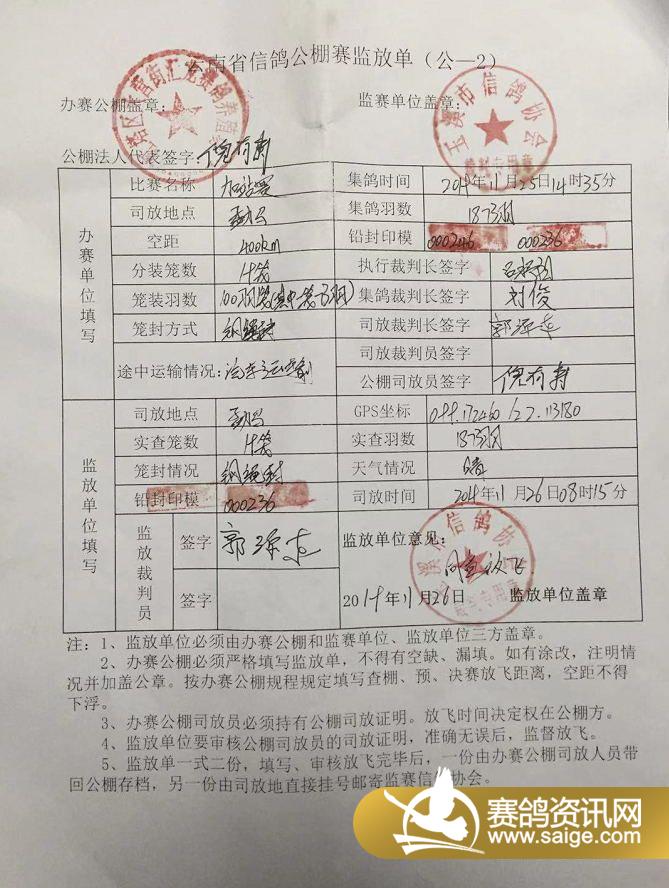 云南省信鸽公棚赛监放单（公—2）
办赛公棚盖章：
监赛单位盖章：
玉溪市信鸽协会
公棚法人代表签字：倪有寿
办赛单位填写
比赛名称 加站赛 集鸽时间 2014年11月25日14时35分
司放地点 集鸽羽数 1873羽
空距 400km 铅封印模 000246 000236
分装笼数 执行裁判长签字
笼装羽数 集鸽裁判长签字 刘俊
笼封方式 钢绳封 司放裁判长签字 郭泽东
司放裁判员签字
途中运输情况： 公棚司放员签字 倪有寿
监放单位填写
司放地点 GPS坐标
实查笼数 实查羽数 1873羽
笼封情况 钢绳封 天气情况 晴
铅封印模 000236 司放时间 2014年11月26日08时15分
监放裁判员
签字 郭泽东
签字
监放单位意见：
同意放飞
玉溪市信鸽协会
2014年11月26日 监放单位盖章
注：1、监放单位必须由办赛公棚和监赛单位、监放单位三方盖章。
2、办赛公棚必须严格填写监放单，不得有空缺、漏填。如有涂改，注明情
况并加盖公章。按办赛公棚规程规定填写查棚、预、决赛放飞距离，空距不得
下浮。
3、办赛公棚司放员必须持有公棚司放证明。放飞时间决定权在公棚方。
4、监放单位要审核公棚司放员的司放证明，准确无误后，监督放飞。
5、监放单一式二份，填写、审核放飞完毕后，一份由办赛公棚司放人员带
回公棚存档，另一份由司放地直接挂号邮寄监赛信鸽协会。
赛鸽资讯网
www.saige.com